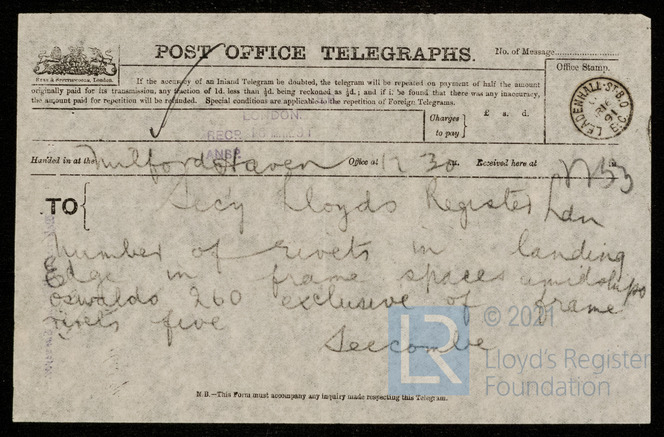 POST OFFICE TELEGRAPHS.
No. of Message
If the accuracy of an Inland Telegram be doubted, the telegram will be repeated on payment of half the amount
originally paid for its transmission, any fraction of 1d. less than ½d. being reckoned as ½d.; and if it be found that there was any inaccuracy,
the amount paid for repetition will be refunded. Special conditions are applicable to the repetition of Foreign Telegrams.
Office Stamp.
LEADENHALL ST. B.O
E.C.
LONDON
RECD
Charges to pay
£ s. d.
Handed in at the Milford Haven Office at 12 30 Received here at
TO Secy Lloyds Register Ldn
Number of rivets in landing
Edge in frame spaces amidships
oswaldo 260 exclusive of frame
rivets five
Seccombe
N.B.—This Form must accompany any inquiry made respecting this Telegram.
LR
© 2021
Lloyd's Register
Foundation